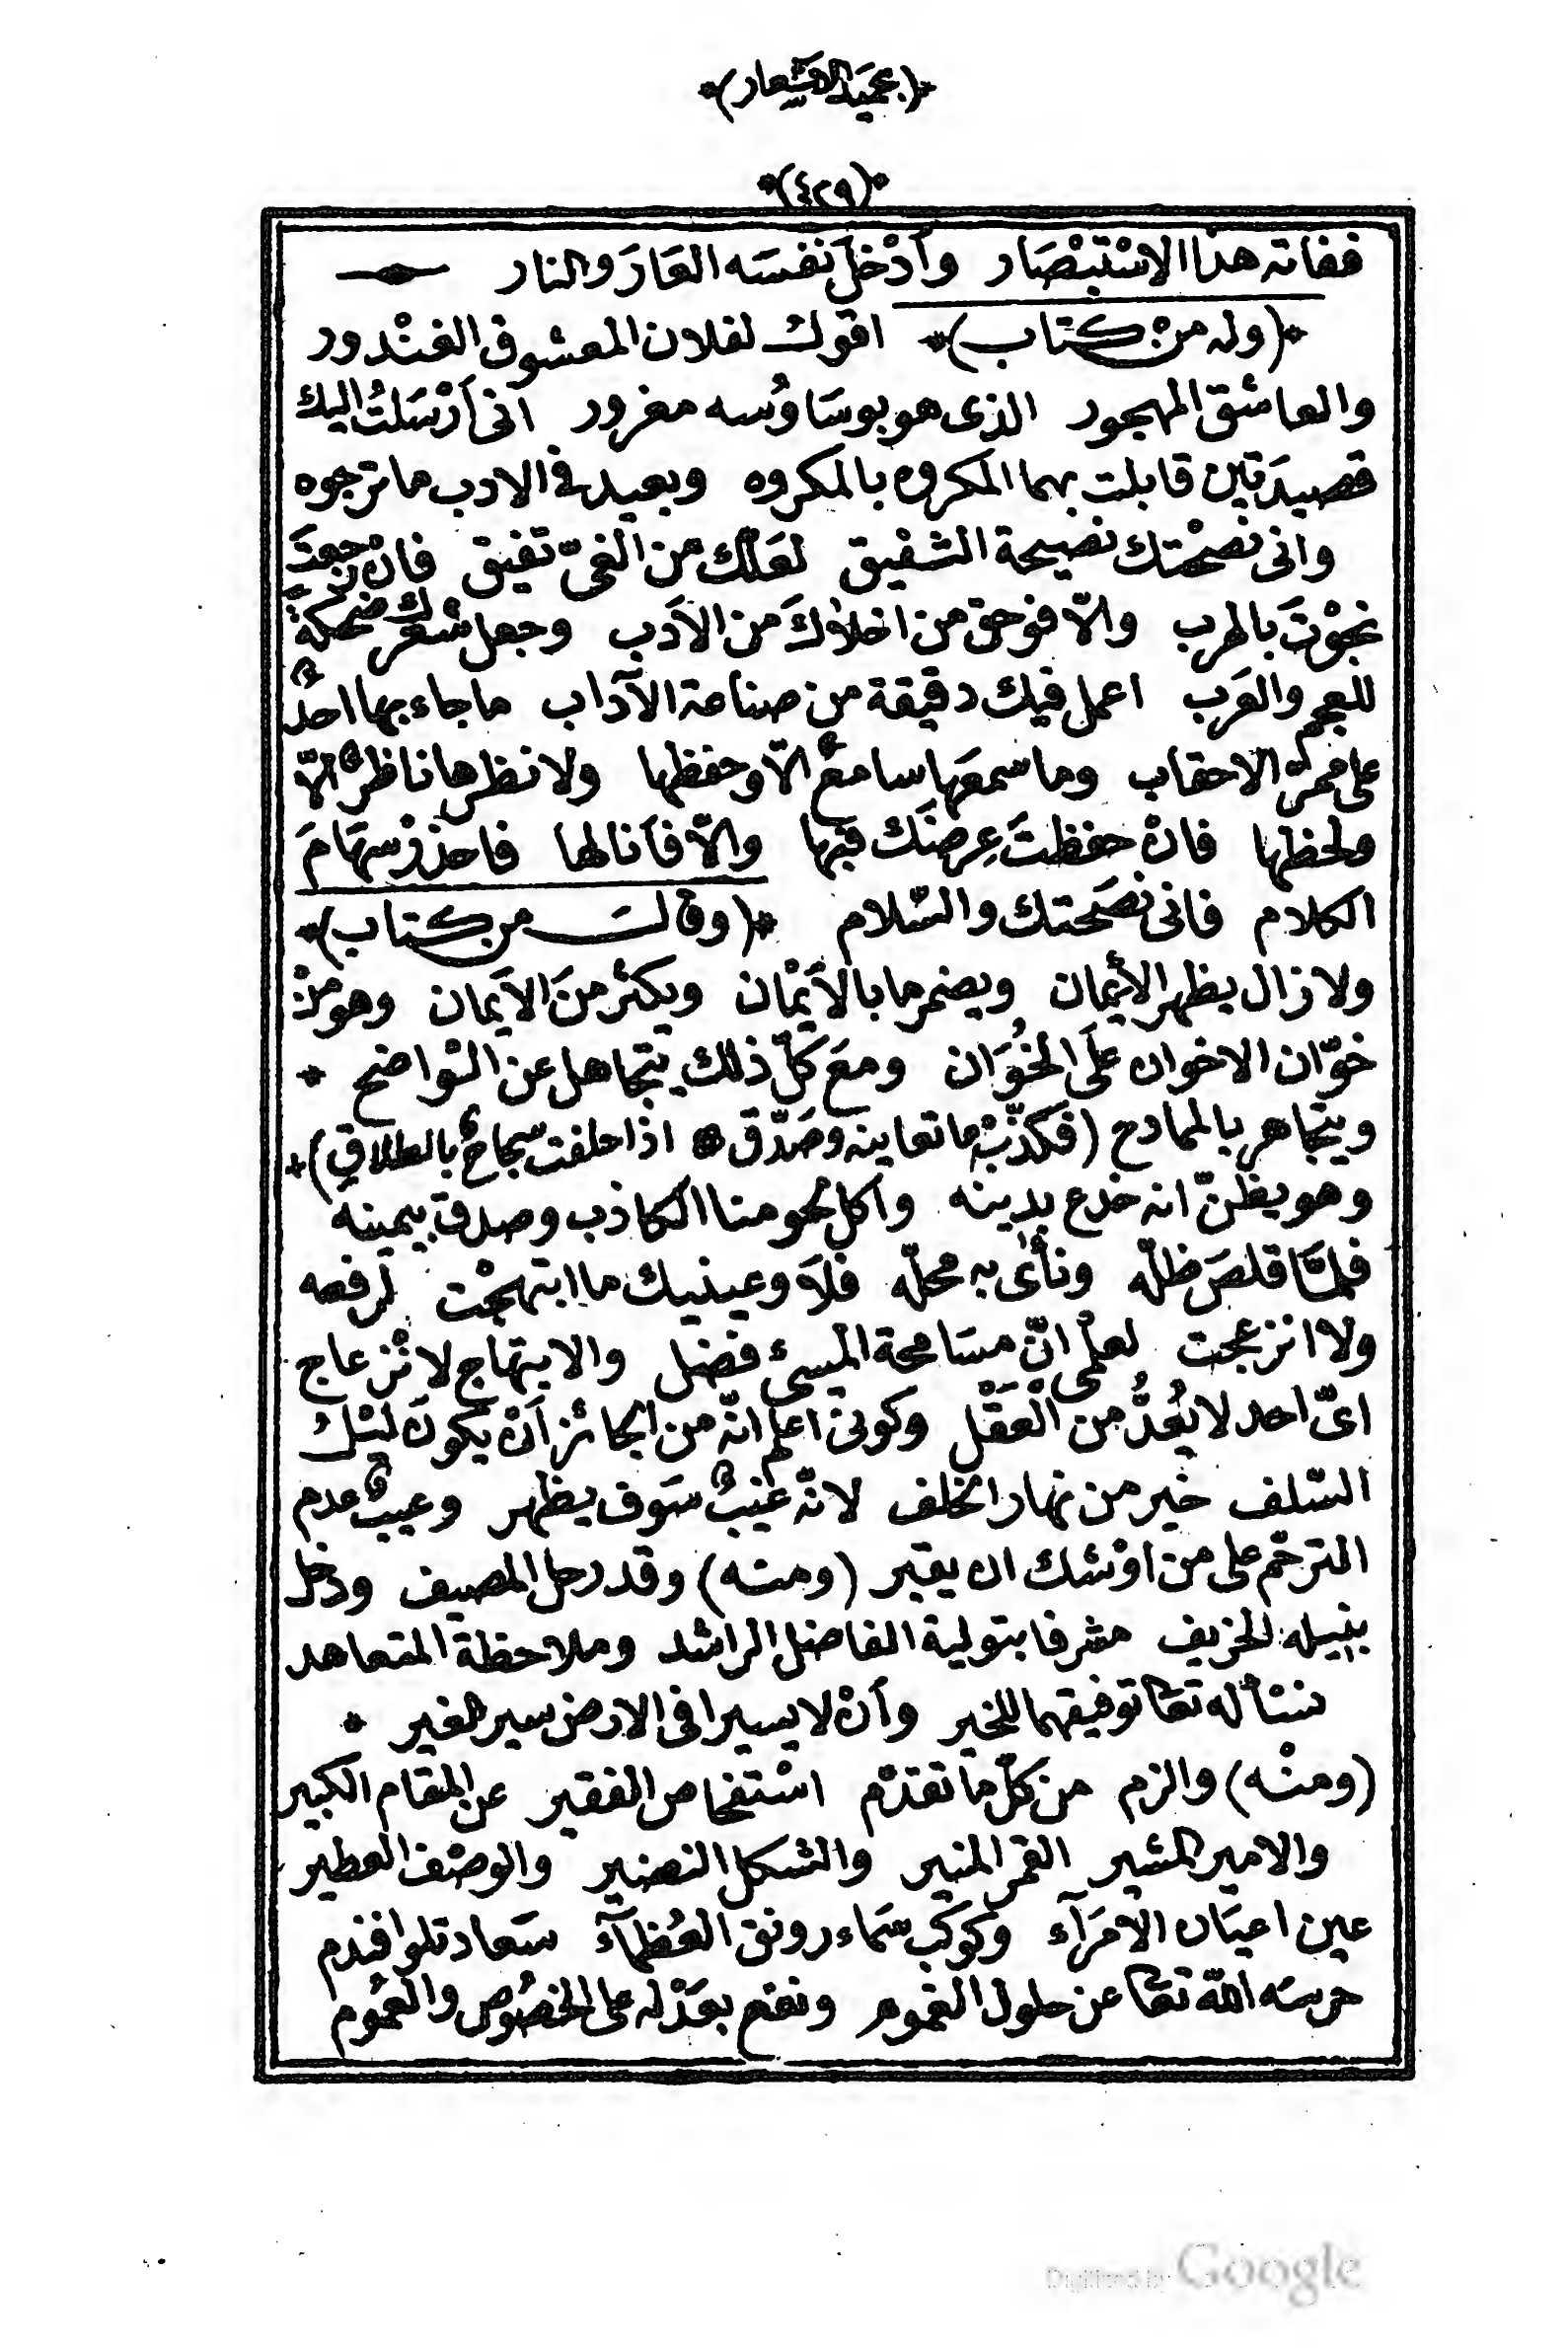 ﴿عجيبة الاشعار﴾
(٤٢٩)
ففاته هذا الاسْتبْصَار وأدْخلَ نفسَه العَارَ والنار
(وله منْ كتاب) اقول لفلان المعشوق الغنْدور
والعاشق المهجور الذى هو بوسَاوُسه مغرور انى اَرْسَلتُ اليك
قصيدَتين قابلت بهما المكروه بالمكروه وبعيد فى الادب ما ترجوه
وانى نصحْتك نصيحة الشفيق لعَلّك من الغىّ تفيق فان رجعتَ
نجوْتَ بالهرب والّا فوحق من اخلاكَ من الاَدَب وجعل شعْرك ضحكةً
للعجم والعَرب اعمل فيك دقيقة من صناعة الآداب ما جاء بها احدٌ
على ممرّ الاحقاب وما سمعَها سامعٌ الّا وحفظها ولا نظرها ناظرٌ الّا
ولحظها فانْ حفظتَ عِرضَك فيها والّا فاَنا لها فاحذرْ سهَامَ
الكلام فانى نصَحتك والسّلام (وقال من كتاب)
ولا زال يظهر الأيمان ويضمر ما بالأيْمان ويكثر منَ الاَيمان وهو منْ
خوّان الاخوان علَى الخُوَان ومعَ كلّ ذلك يتجاهل عن النواضح
ويتجاهر بالممادح (فكذّبْ ما تعاينه وصَدّق اذا حلفت سجاحٌ بالطلاقِ)
وهو يظنّ انه خدع بدينه واكل لحومنا الكاذب وصدق بيمينه
فلمّا قلصَ ظلّه ونأى به محلّه فلاَ وعينيك ما ابتهجْت لرفعه
ولا انزعجت لعلمى انّ مسَامحة المسىء فضل والابتهاج لانْزعاج
اىّ احد لا يُعَدُّ من العَقْل وكونى اعلم انّه من الجائز اَنْ يكون ليْل
السّلف خير من نهار الخلف لانّه غيْبٌ سَوف يظهر وعيبٌ عدم
الترحّم على من اوْشك ان يقبر (ومنه) وقد رحل المصيف ودخل
بنيله الخريف مشرفا بتولية الفاضل الراشد وملاحظة المتعاهد
نسْأله تعالى توفيقهما للخير وأنْ لا يسيرا فى الارض سير الغير
(ومنْه) والزم من كلّ ما تقدّم اسْتفحاص الفقير عن المقام الكبير
والامير المشير القمر المنير والشكل النضير والوصْف العطير
عين اعيَان الامَرآء وكوكب سَماء رونق العُظمآء سَعادتلو افندم
حرسَه اللّه تعالى عن حلول الغموم ونفع بعَدْله على الخصُوص والعمُوم
Digitized by Google